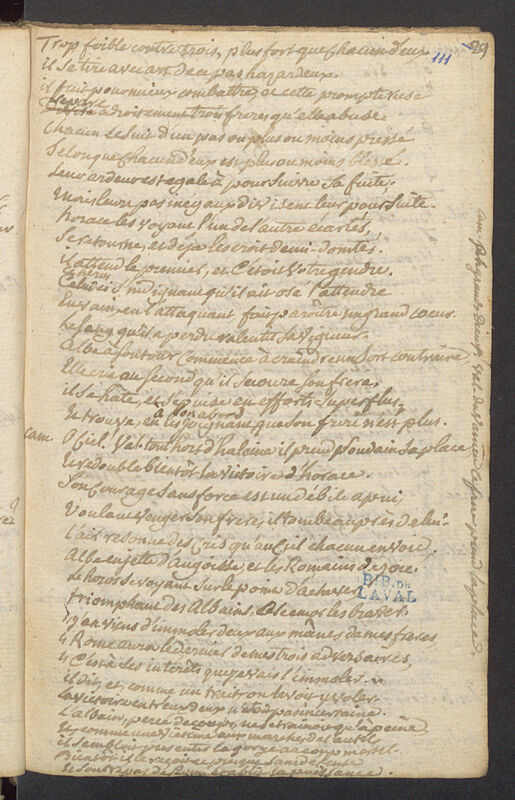 111
Trop foible contre trois, plus fort que chacun d'eux
il se tire avec art de ce pas hazardeux.
il fuit pour mieux combattre, et cette prompte ruse
separe
adroitement trois freres qu'elle abuse
Chacun le suit d'un pas ou plus ou moins pressé
Selon que chacun d'eux est plus ou moins blessé.
Leur ardeur est egale à poursuivre sa fuite.
Mais leurs pas inegaux divisent leur poursuite.
horace les voyant l'un de l'autre écartés,
Se retourne, et deja les croit demi-domtés.
il attend le premier, et c'etoit votre gendre.
Celui-ci indigné qu'il ait osé l'attendre
En vain en l'attaquant fait paroître un grand coeur.
Le sang qu'il a perdu ralentit sa vigueur.
Albe à son tour commence à craindre un sort contraire
Elle crie au second qu'il secoure son frere,
il se hate, et s'epuise en efforts superflus.
à son abord
Il trouve, en les joignant que son frere n'est plus.
Cam.
O Ciel. Val. tout hors d'haleine il prend pourtant sa place
Et redouble bientôt la victoire d'horace.
Son courage sans force est un débile apui,
Voulant venger son frere, il tombe auprès de lui.
L'air resonne des cris qu'au ciel chacun envoie.
Albe en jette d'angoisse, et les Romains de joie.
Le heros se voyant sur le point d'achever
BIB. DE
LAVAL
triomphant des Albains les braver.
j'en viens d'immoler deux aux mânes de mes freres
Rome aura le dernier de mes trois adversaires,
C'est à ses interêts que je vais l'immoler.
il dit, et comme un trait on le voit y voler.
La victoire entre eux deux n'etoit pas incertaine.
L'albain, percé de coups, ne se trainoit qu'à peine,
Et comme une victime aux marches de l'autel
il sembloit presenter la gorge au coup mortel.
Bientôt il le reçoit